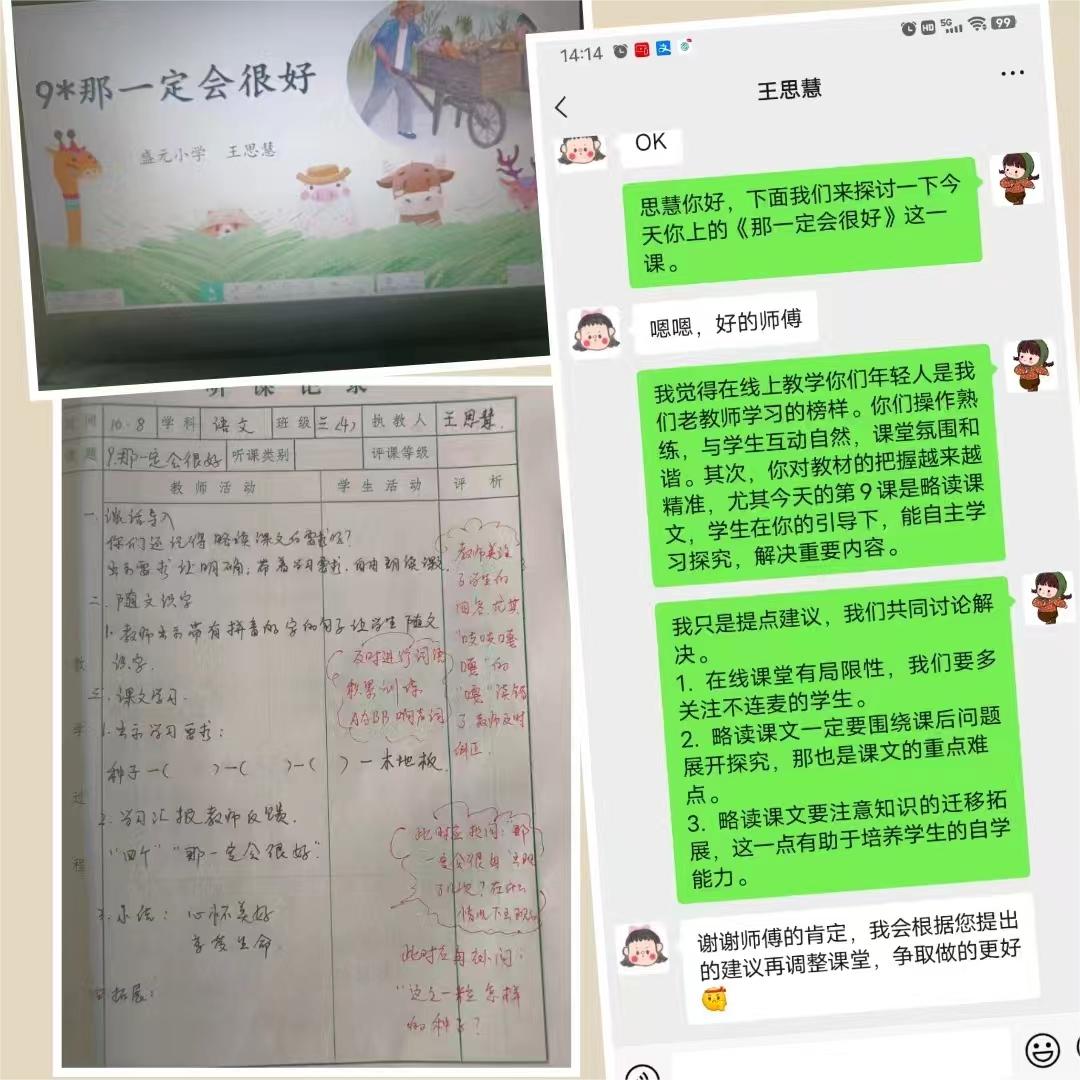 9*那一定会很好
盛元小学 王思慧
听课记录
时间 10.8 学科 语文 班级 三(4) 执教人 王思慧
课题 9.那一定会很好 听课类别 评课等级
教师活动 学生活动 评析
一、谈话导入
你们还记得略读课文的要求吗?
出示要求让明确,带着学习要求,自由朗读课文.
二、随文识字
1.教师出示带有拼音的字的句子让学生随文
识字.
三、课文学习.
1.出示学习要求:
种子—( )—( )—( )—木地板.
2.学习汇报教师反馈.
"四个""那一定会很好".
3.小结:心怀美好
享受生命.
四、拓展:
教学过程
教师关注
了学生的
回答尤其
"吱吱嘎
嘎"的
"嘎"读错
了教师及时
纠正.
及时进行词语
积累训练
AABB 响声词
此时应提问:那
一定会很好出现
了几次?在什么
情况下出现的
此时应再追问:
"这是一粒怎样
的种子?
14:14
HD 5G 99
王思慧
OK
思慧你好,下面我们来探讨一下今
天你上的《那一定会很好》这一
课。
嗯嗯,好的师傅
我觉得在线上教学你们年轻人是我
们老教师学习的榜样。你们操作熟
练,与学生互动自然,课堂氛围和
谐。其次,你对教材的把握越来越
精准,尤其今天的第9课是略读课
文,学生在你的引导下,能自主学
习探究,解决重要内容。
我只是提点建议,我们共同讨论解
决。
1. 在线课堂有局限性,我们要多
关注不连麦的学生。
2. 略读课文一定要围绕课后问题
展开探究,那也是课文的重点难
点。
3. 略读课文要注意知识的迁移拓
展,这一点有助于培养学生的自学
能力。
谢谢师傅的肯定,我会根据您提出
的建议再调整课堂,争取做的更好